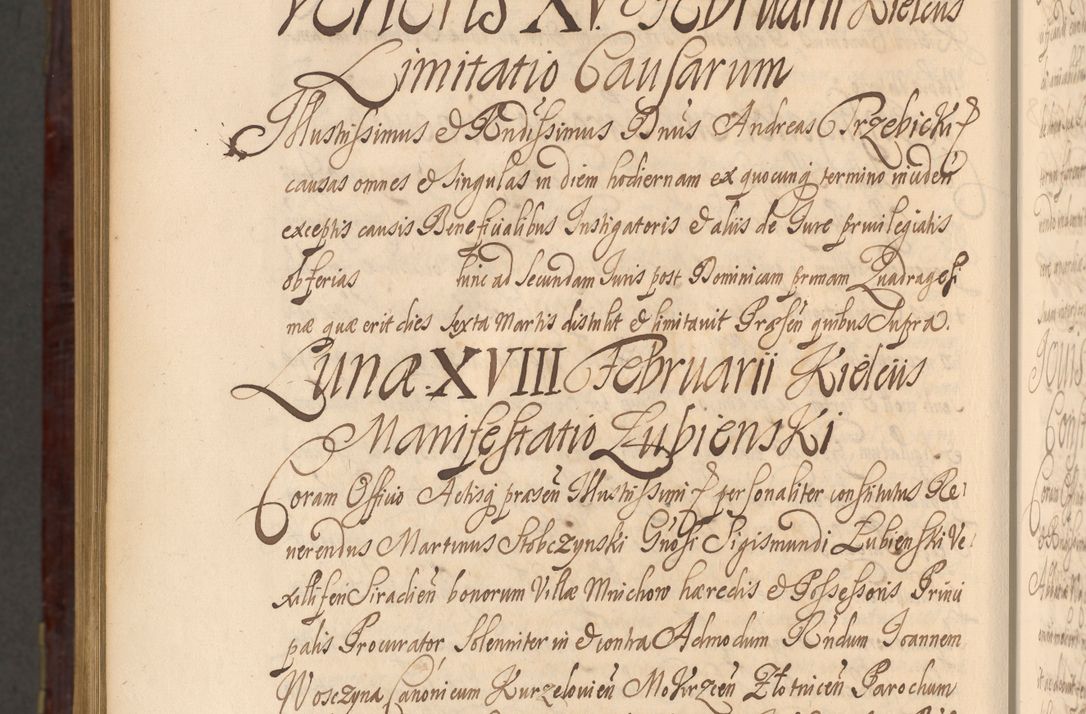 Veneris XV Februarii Kielciis
Limitatio Causarum
Illustrissimus & Rndissimus Dnus Andreas Trzebicki
causas omnes & singulas in diem hodiernam ex quocunq termino inciden
exceptis causis Beneficialibus Instigatoris & aliis de Iure privilegiatis
ob ferias tunc ad secundam Iuris post Dominicam primam Quadragesi
mæ quæ erit dies sexta Martis distulit & limitavit Præsen quibus Supra.
Lunæ XVIII Februarii Kielciis
Manifestatio Łubienski
Coram Officio Actisq præsen Illustrissimi personaliter constitutus Re
verendus Martinus Stobczynski Gnosi Sigismundi Łubienski Ve
xillifen Siradien bonorum Villæ Mnichow hæredis & Possessoris Princi
palis Procurator Solenniter in & contra Admodum Rndum Ioannem
Wosczyna Canonicum Kurzelovien Mokrzcen Złotnicen Parochum